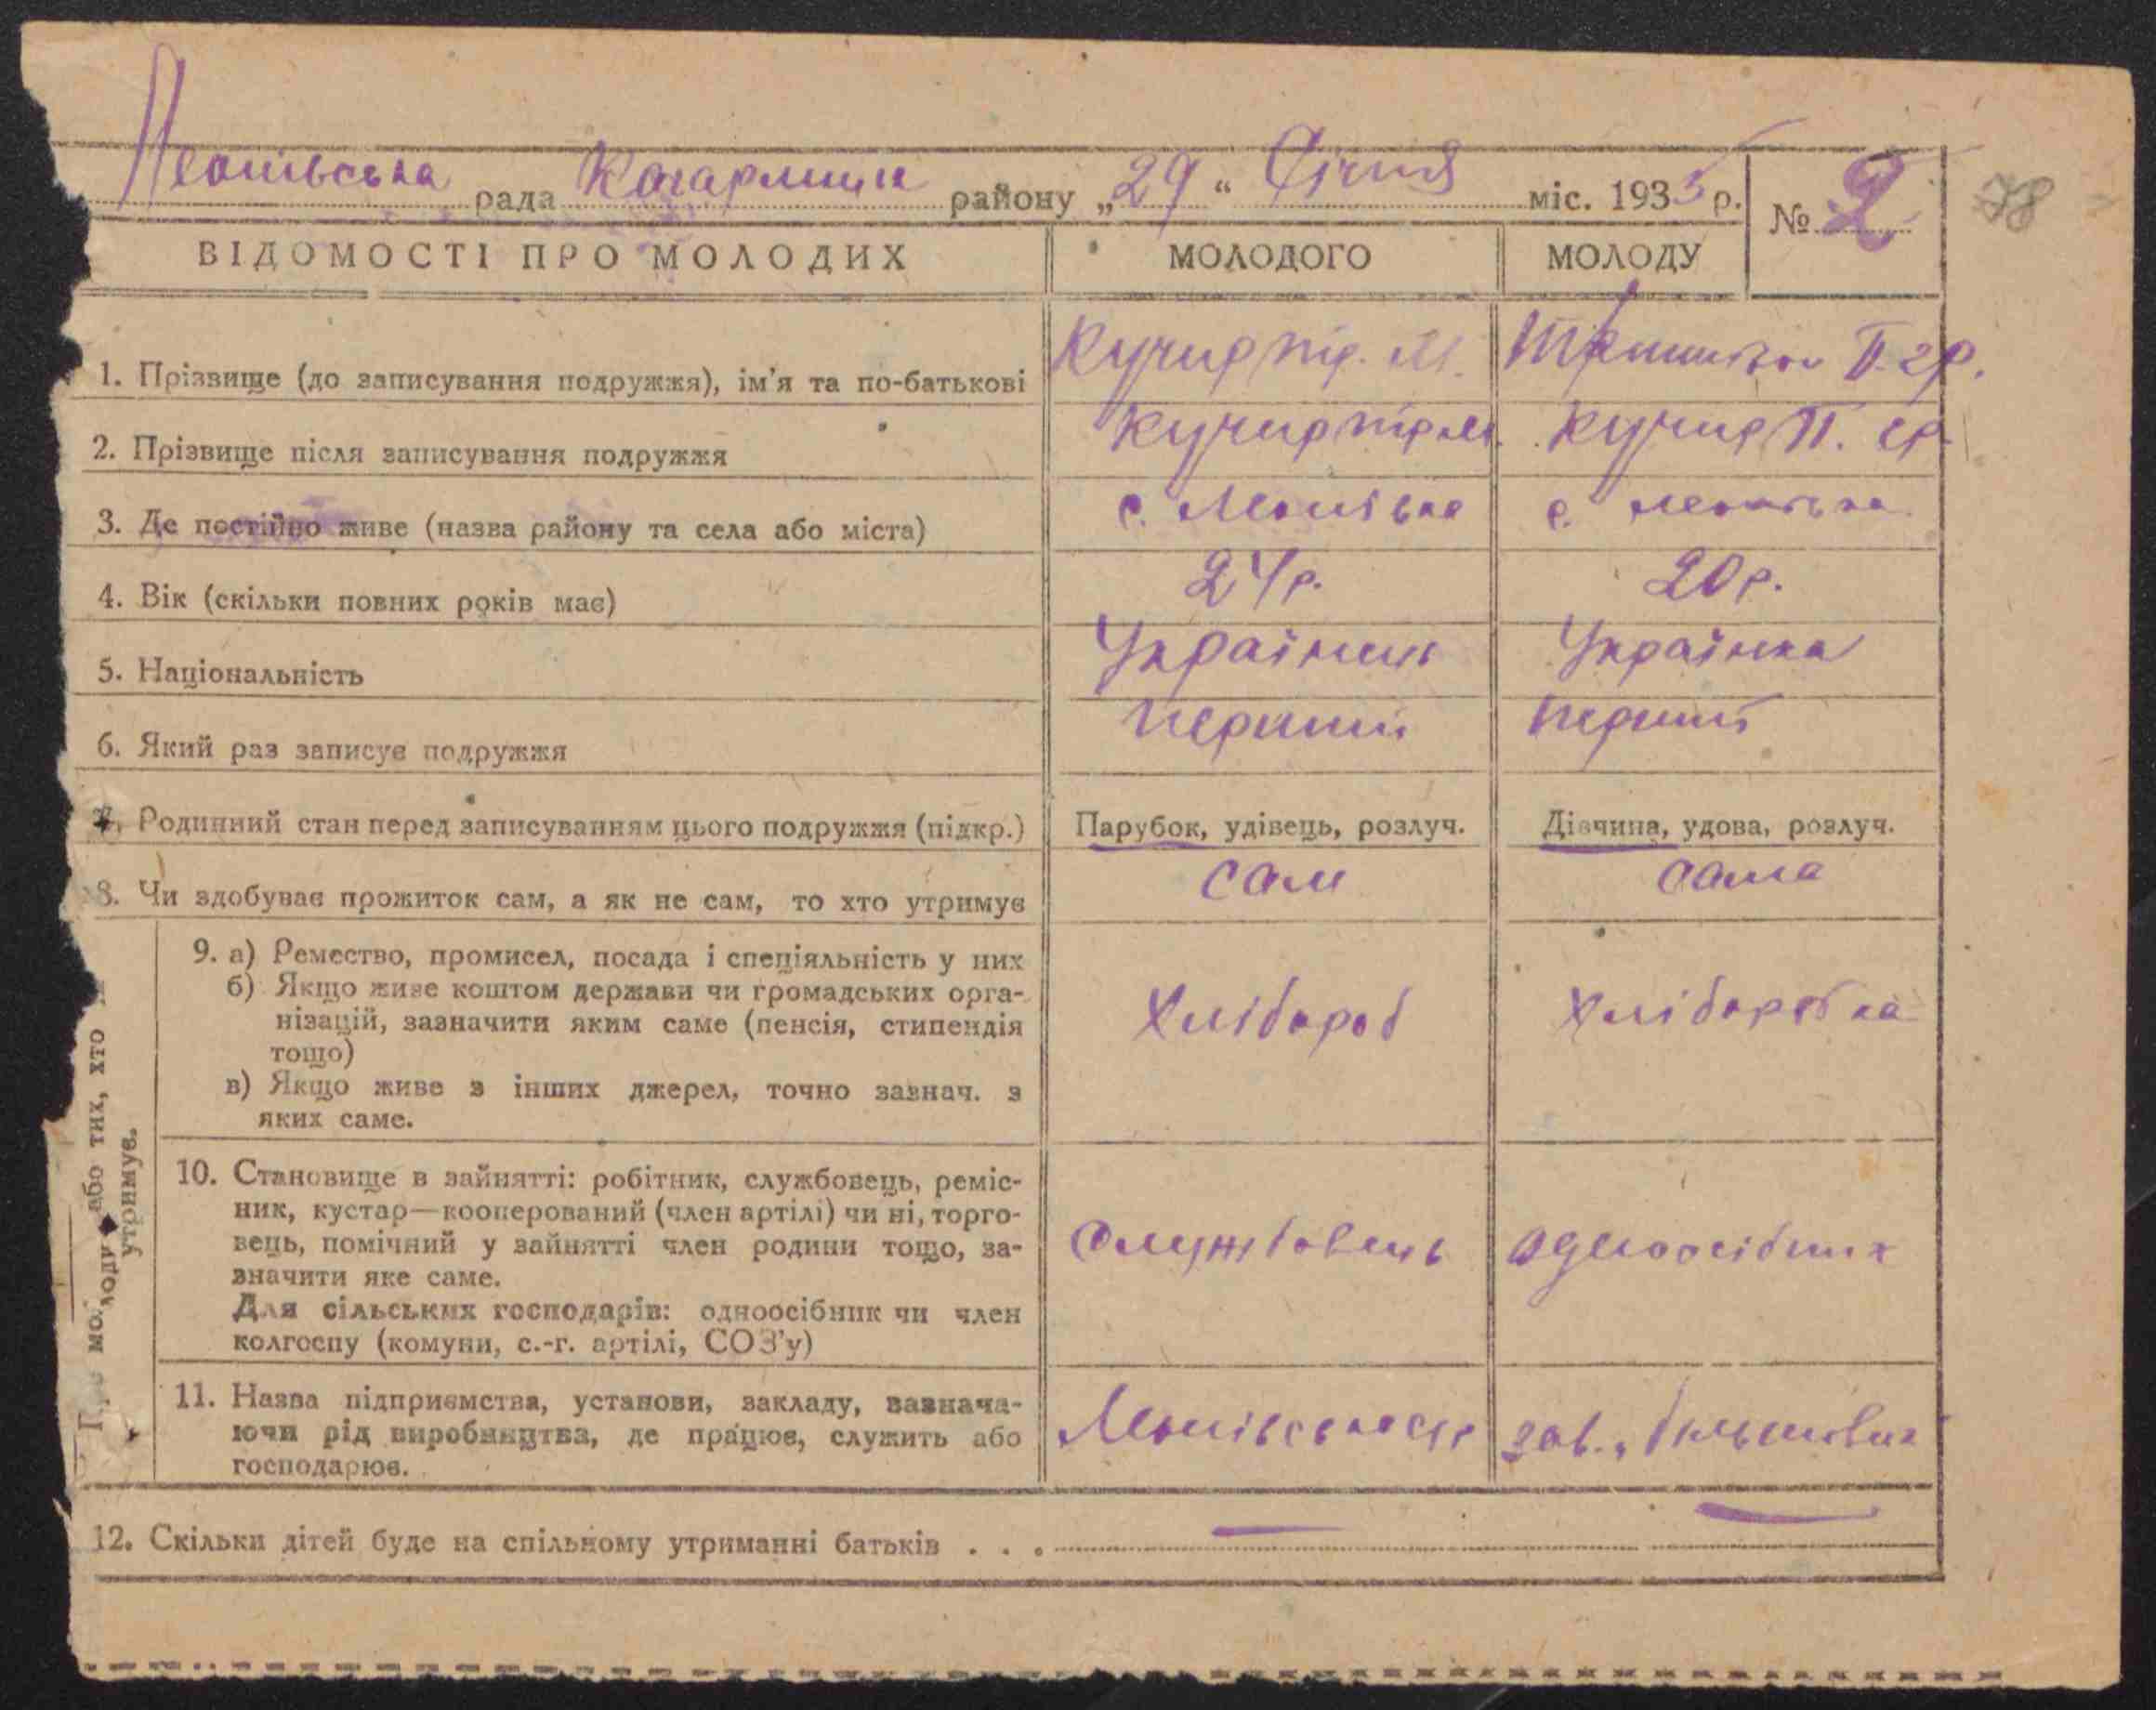 Леонівська рада Кагарлицьк району „29“ Січня міс. 1935 р. № 2 78
ВІДОМОСТІ ПРО МОЛОДИХ МОЛОДОГО МОЛОДУ
1. Прізвище (до записування подружжя), ім’я та по-батькові Кучир М. П. гр.
2. Прізвище після записування подружжя Кучир Кучир П. гр
3. Де постійно живе (назва району та села або міста) с. Леонівка с. Леонівка
4. Вік (скільки повних років має) 24 р. 20 р.
5. Національність Українець Українка
6. Який раз записує подружжя перший перший
7. Родинний стан перед записуванням цього подружжя (підкр.) Парубок, удівець, розлуч. Дівчина, удова, розлуч.
8. Чи здобуває прожиток сам, а як не сам, то хто утримує сам сама
Про молоду або тих, хто
утримує.
9. а) Ремество, промисел, посада і спеціяльність у них
б) Якщо живе коштом держави чи громадських орга-
нізацій, зазначити яким саме (пенсія, стипендія
тощо)
в) Якщо живе з інших джерел, точно зазнач. з
яких саме.
Хлібороб Хліборобка
10. Становище в зайнятті: робітник, службовець, реміс-
ник, кустар—кооперований (член артілі) чи ні, торго-
вець, помічний у зайнятті член родини тощо, за-
значити яке саме.
Для сільських господарів: одноосібник чи член
колгоспу (комуни, с.-г. артілі, СОЗ’у)
Службовець одноосібниk
11. Назва підприємства, установи, закладу, зазнача-
ючи рід виробництва, де працює, служить або
господарює.
Леонівська більшовик
12. Скільки дітей буде на спільному утриманні батьків . . . — —